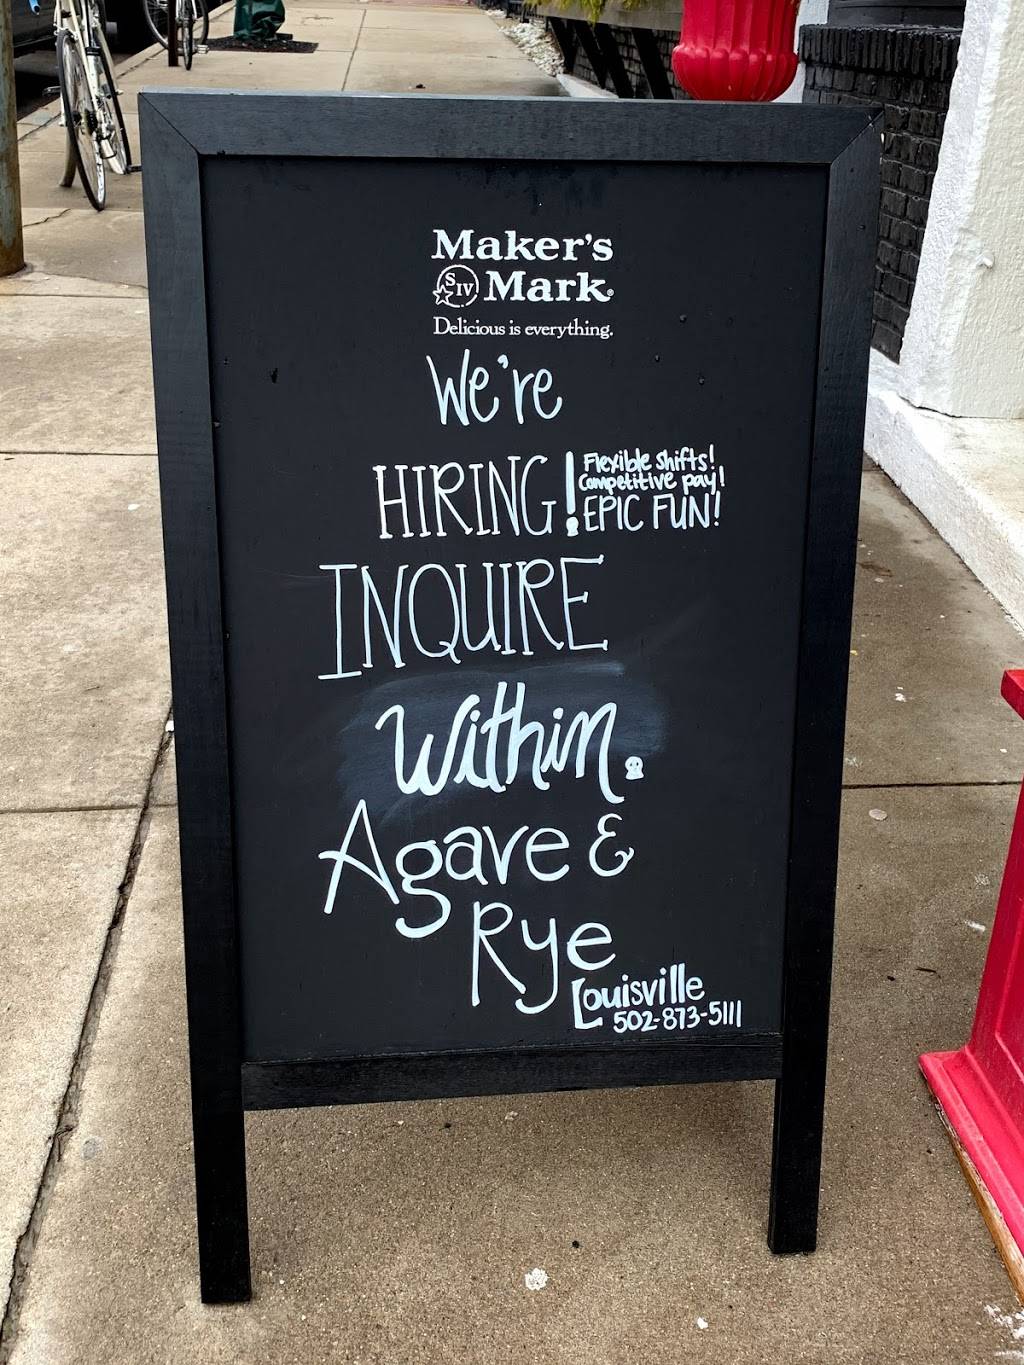 Maker's
SIV Mark®
Delicious is everything.
We're
HIRING!
Flexible Shifts!
Competitive pay!
EPIC FUN!
INQUIRE
Within.
Agave &
Rye
Louisville
502-873-5111